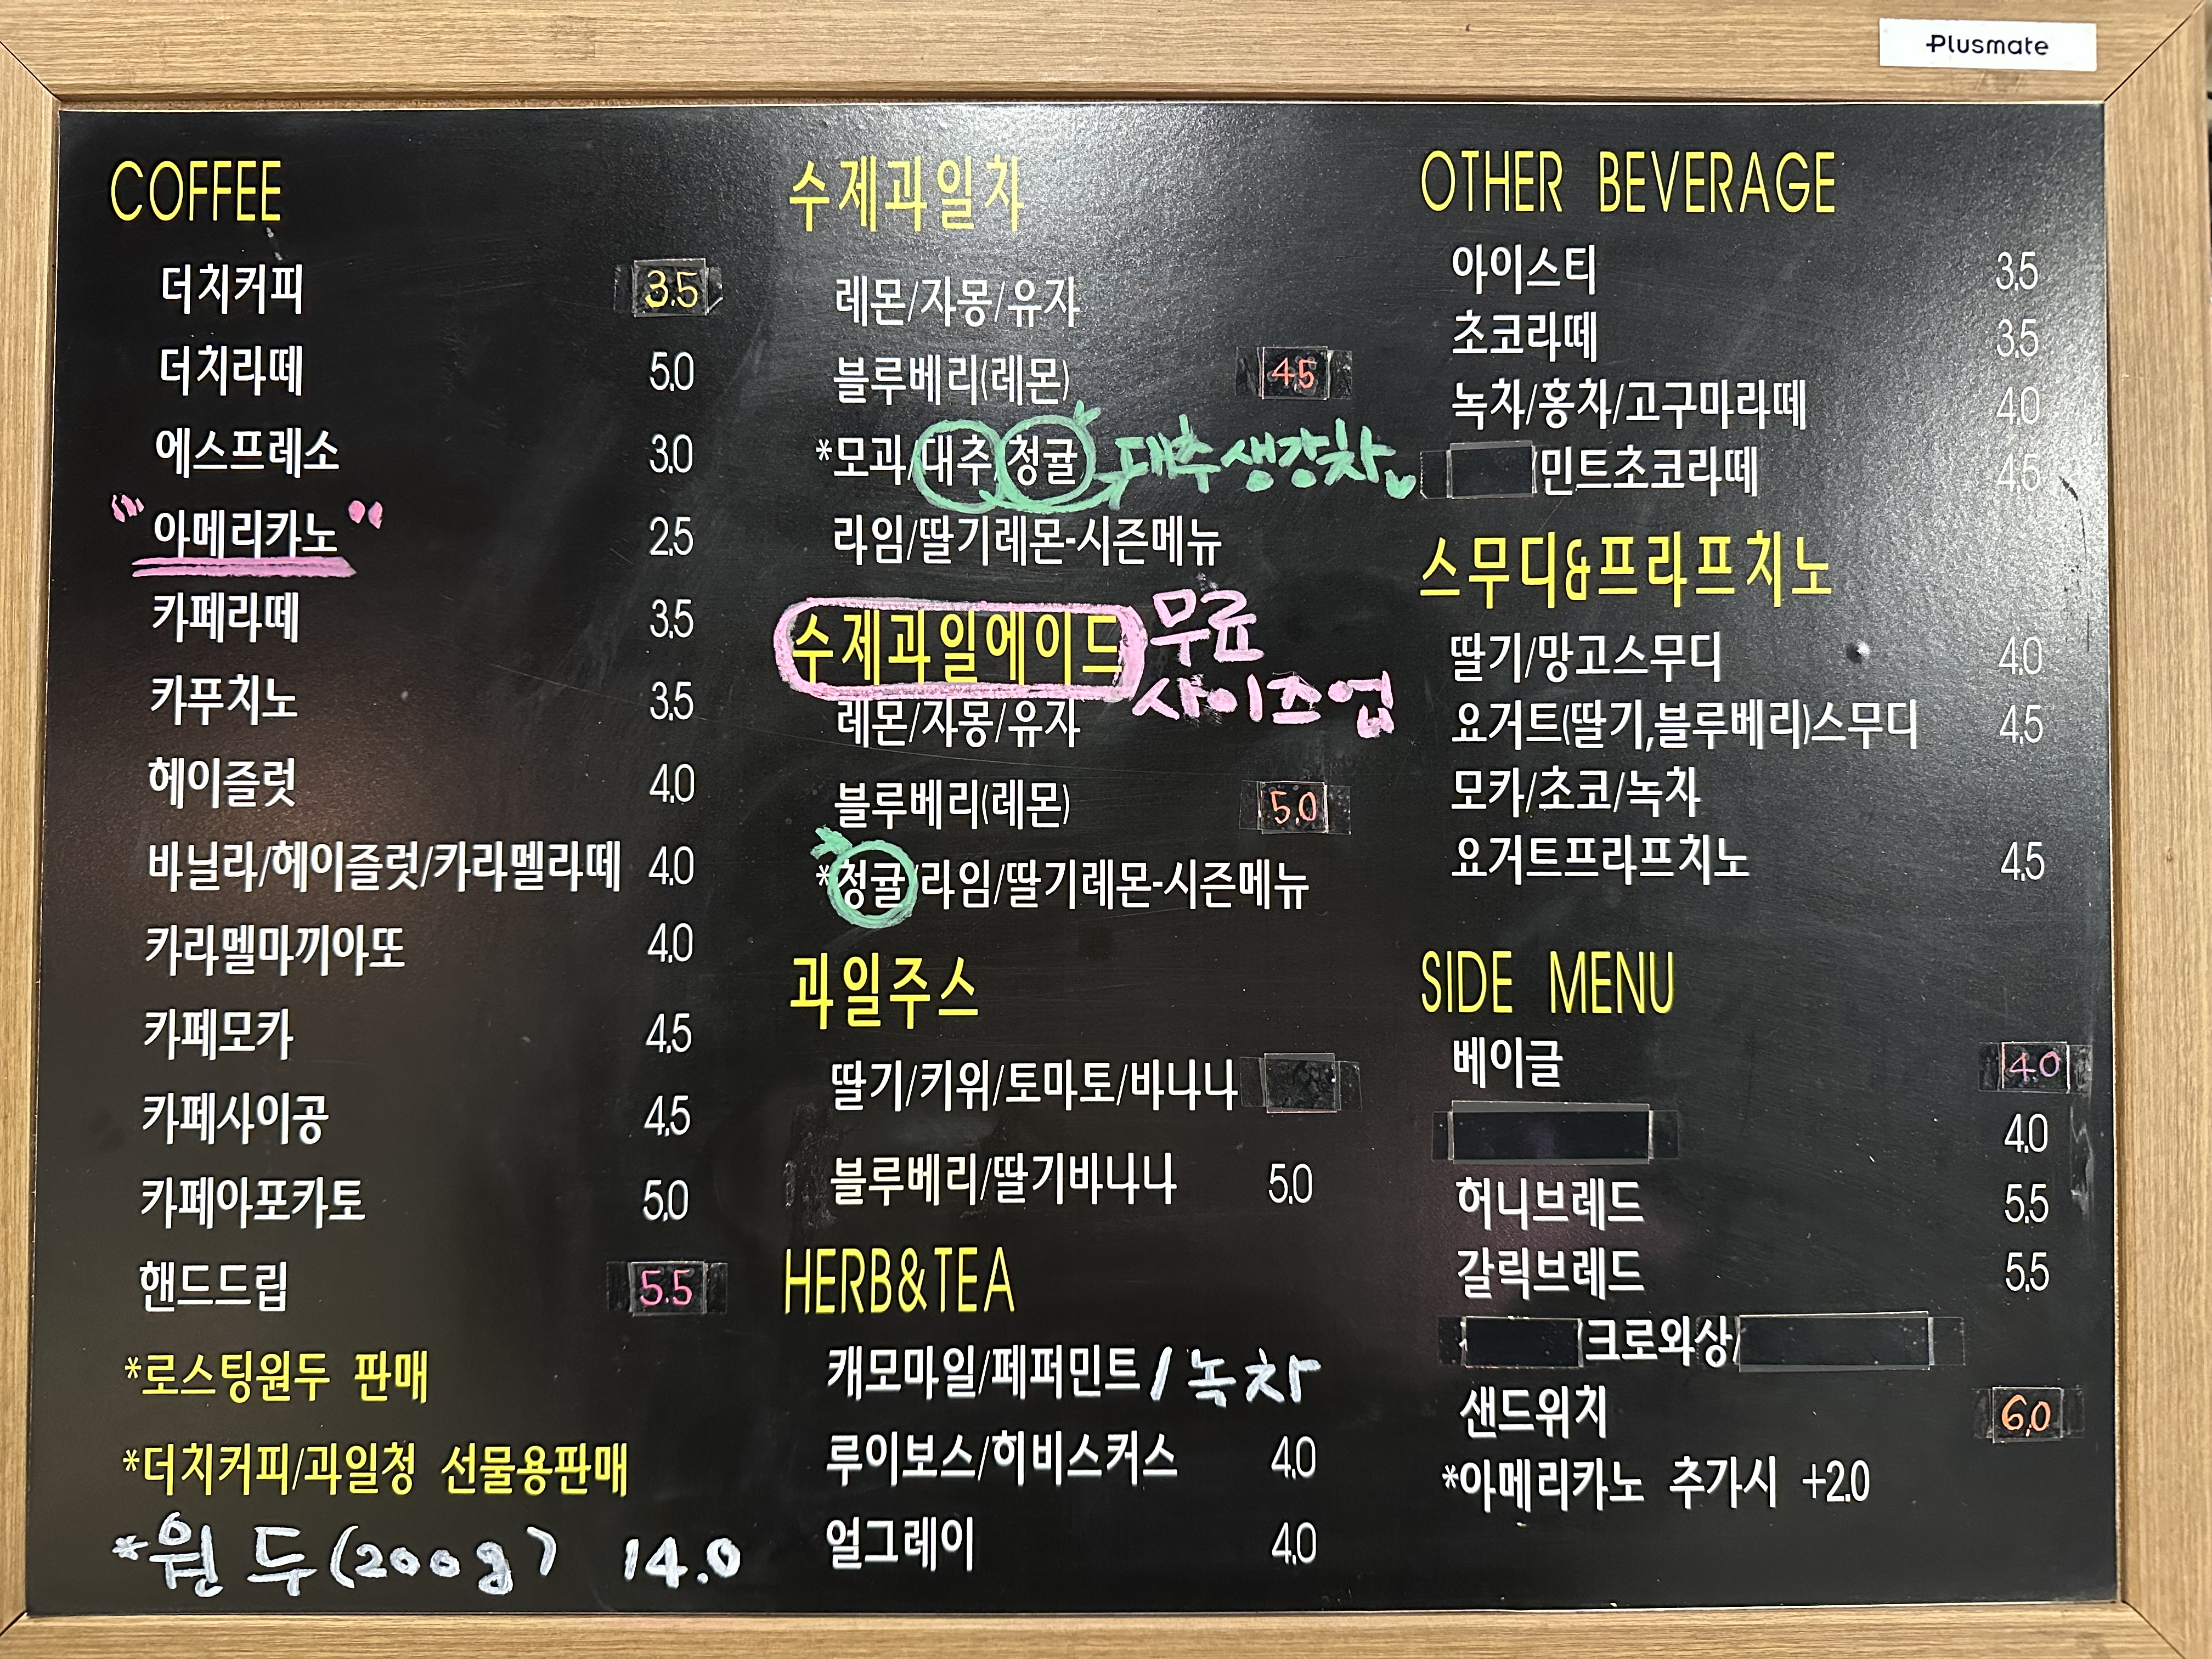 Plusmate
COFFEE
더치커피 3.5
더치라떼 5.0
에스프레소 3.0
"아메리카노" 2.5
카페라떼 3.5
카푸치노 3.5
헤이즐럿 4.0
바닐라/헤이즐럿/카라멜라떼 4.0
카라멜마끼아또 4.0
카페모카 4.5
카페사이공 4.5
카페아포카토 5.0
핸드드립 5.5
*로스팅원두 판매
*더치커피/과일청 선물용판매
*원두(200g) 14.0
수제과일차
레몬/자몽/유자
블루베리(레몬) 4.5
*모과/대추/청귤 대추생강차
라임/딸기레몬-시즌메뉴
수제과일에이드 무료
사이즈업
레몬/자몽/유자
블루베리(레몬) 5.0
*청귤/라임/딸기레몬-시즌메뉴
과일주스
딸기/키위/토마토/바나나
블루베리/딸기바나나 5.0
HERB&TEA
캐모마일/페퍼민트/녹차
루이보스/히비스커스 4.0
얼그레이 4.0
OTHER BEVERAGE
아이스티 3.5
초코라떼 3.5
녹차/홍차/고구마라떼 4.0
/민트초코라떼 4.5
스무디&프라프치노
딸기/망고스무디 4.0
요거트(딸기,블루베리)스무디 4.5
모카/초코/녹차
요거트프라프치노 4.5
SIDE MENU
베이글 4.0
4.0
허니브레드 5.5
갈릭브레드 5.5
/크로와상/
샌드위치 6.0
*아메리카노 추가시 +2.0